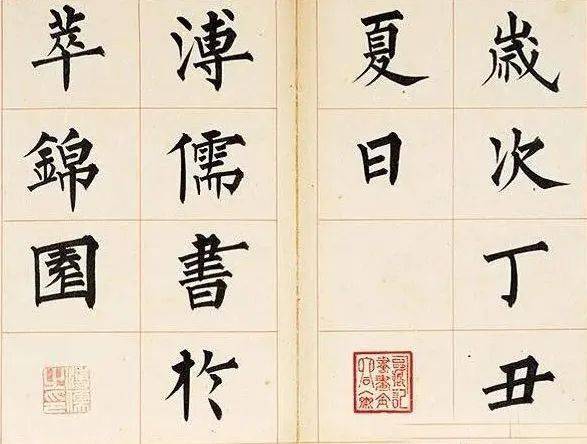 歲次丁丑
夏日
溥儒書於
萃錦園